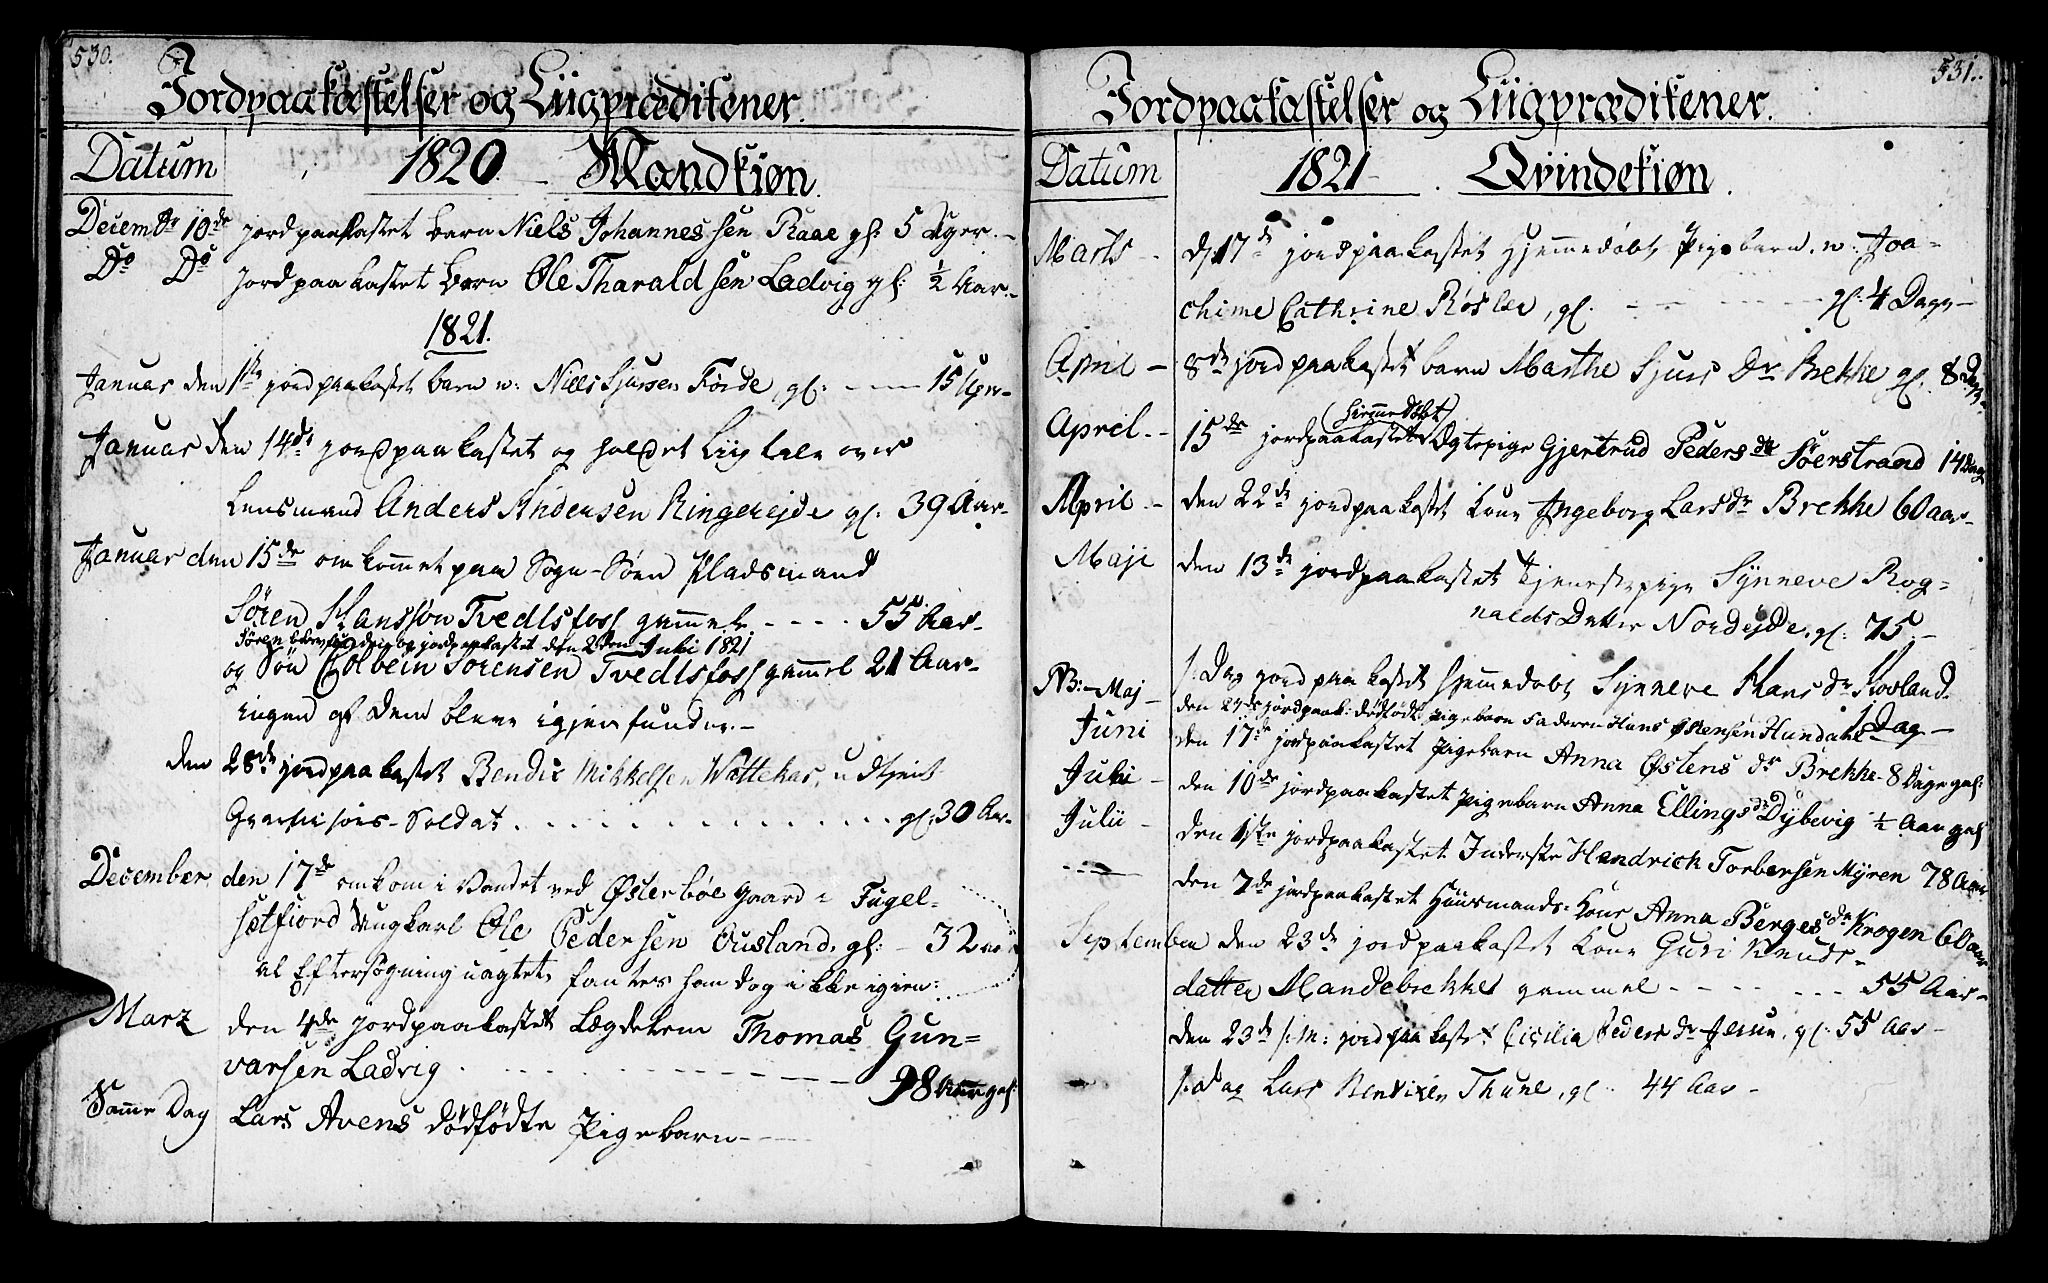 530.
Jordpaakastelser og Liigpræditener.
Datum 1820. Mandkiøn.
Decembr 10de jordpaakastet barn Niels Johannessen Raae gl: 5 Uger.
Do Do jordpaakastet barn Ole Tharaldsen Ladvig gl: ½ Aar.
1821.
Januar den 1ste jordpaakastet barn n: Niels Sjursen Førde, gl: 15 Uger
Januar den 14de jordpaakastet og holdet Liigtale over
Lensmand Anders Andersen Ringereide gl: 39 Aar
Januar den 15de omkommet paa Sogn-Søen Pladsmand
Søren Hansson Tvedtsfoss gammel 55 Aar
Søren blev funden og jordpaakastet den 2den Juli 1821
og Søn Colbein Sørensen Tvedtsfoss gammel 21 Aar
ingen af dem bleve igjenfundne.
den 28de jordpaakastet Bendix Mikkelsen Wattekar, udtjent
Soldat gl: 30 Aar
December den 17de omkom i Vandet ved Østerbøe Gaard i Fugel-
sætfiord Ungkarl Ole Pedersen Ousland, gl: 32
al Eftersøgning uagtet, fantes han dog ikke igien:
Marz den 4de jordpaakastet Lægdelem Thomas Gun-
varsen Ladvig 98 Aar gl:
Samme Dag Lars Avens dødfødte Pigebarn
531.
Jordpaakastelser og Liigpræditener.
Datum 1821 Qvindekiøn.
Marts d 17de jordpaakastet hjemmedøbt Pigebarn. n: Joa-
chime Cathrine Røsler, gl: 4 Dage
April 8de jordpaakastet barn Marthe Sjurs Dr Brekke gl: 8 Dage
(hiemmedøbt)
April 15de jordpaakastet Ægtepige Gjertrud Peders dtr Søerstrand 14 Dage
April den 22de jordpaakastet Kone Ingeborg Larsdr Brekke 60 aar
Maji den 13de jordpaakastet Tjenestepige Synneve Rog-
nalds Datter Nordejde, gl: 75
NB: Maj s: Dag jordpaakastet hjemmedøbt Synneve Hans dr Hovland.
1 Dag
den 27de jordpaak: dødfødt Pigebarn Faderen Hans Østensen Hundahl
Juni den 17de jordpaakastet Pigebarn Anna Østens dr Brekke 8 Dage gl:
Juli den 10de jordpaakastet Pigebarn Anna Ellings dr Dybevig ½ Aar gl:
Julii den 1ste jordpaakastet Inderste Hendrich Torbersen Myren 78 Aar
den 7de jordpaakastet Huusmands-Kone Anna Berges dr Krogen 60 aar
September den 23de jordpaakastet Kone Guri Knuds-
datter Mandebrekke gammel 55 Aar
den 23de s: M: jordpaakastet Cicilia Peders dr gl: 55 Aar
s: dag Lars Bendixen Thune, gl: 44 Aar